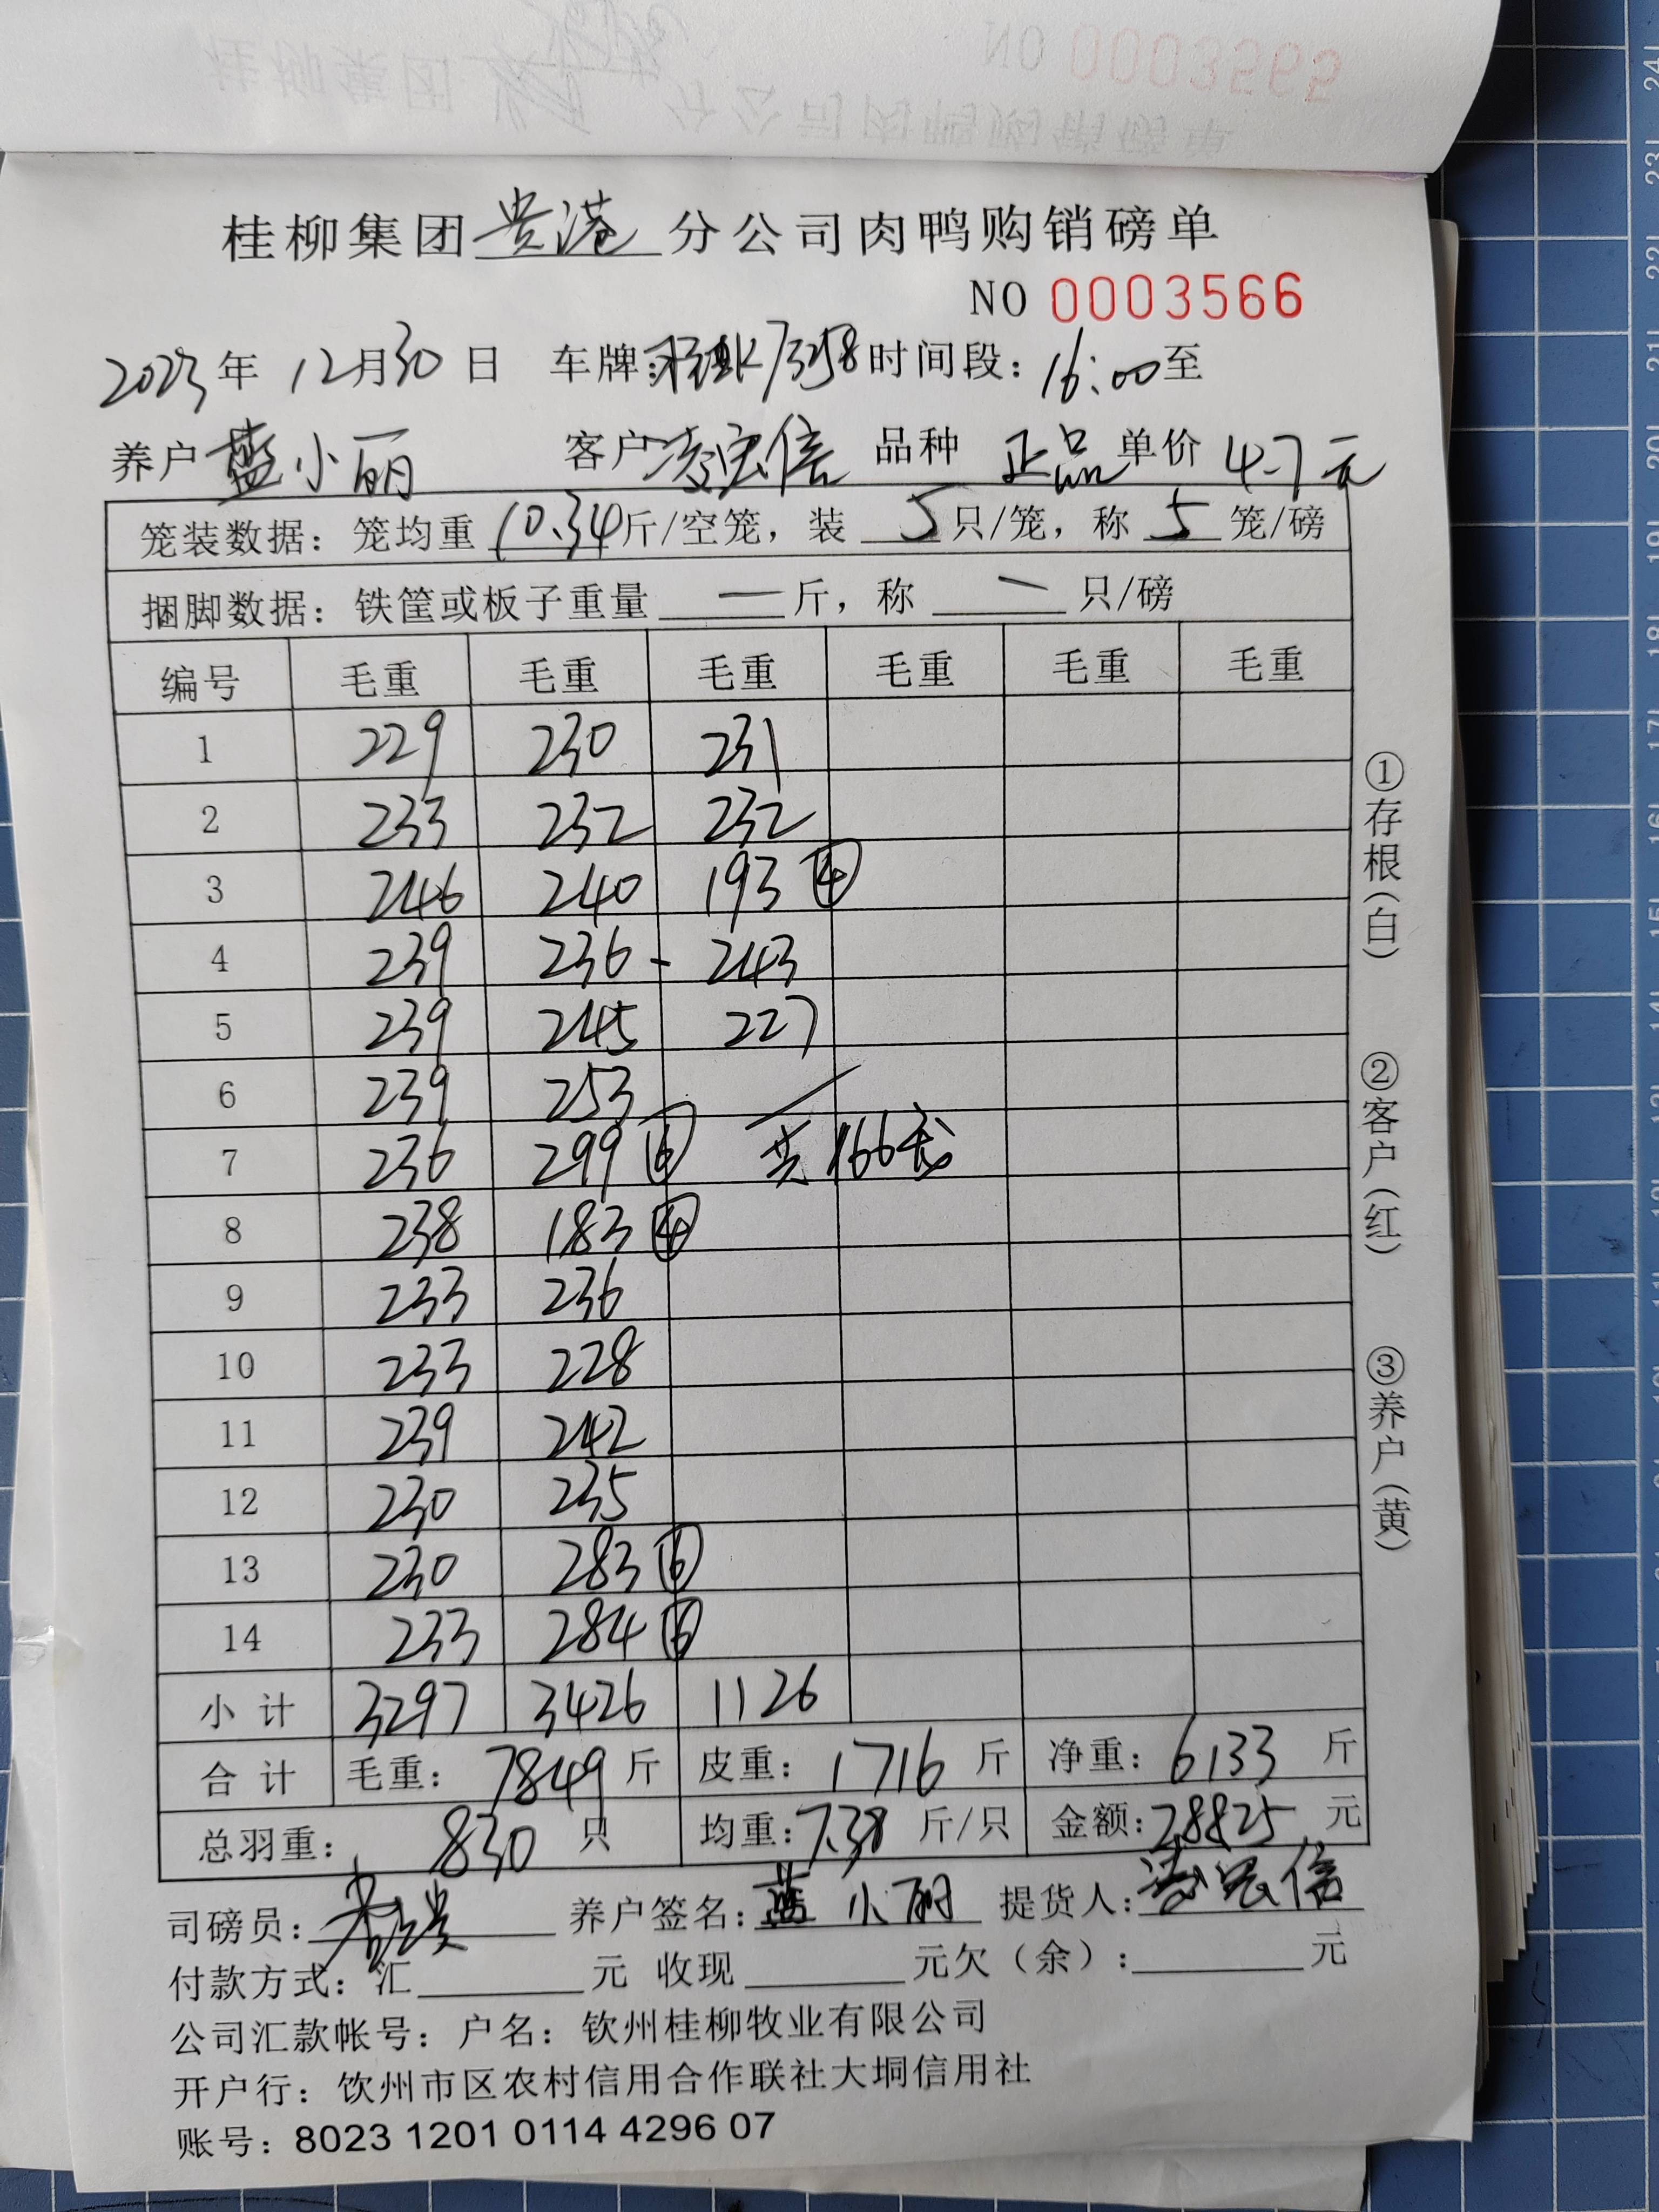 桂柳集团贵港分公司肉鸭购销磅单
NO 0003566
2023年12月30日 车牌:K7358时间段:16:00至
养户蓝小丽 客户凌忠信 品种 正品 单价 4.7元
笼装数据:笼均重 10.34斤/空笼,装 5只/笼,称 5 笼/磅
捆脚数据:铁筐或板子重量 — 斤,称 — 只/磅
编号 毛重 毛重 毛重 毛重 毛重 毛重
1 229 230 231
2 233 232 232
3 246 240 193 ④
4 239 236 - 243
5 239 245 227
6 239 253
7 236 299 ⑥ 共166笼
8 238 183 ④
9 233 236
10 233 228
11 239 242
12 230 235
13 230 283 ⑥
14 233 284 ⑥
小计 3297 3426 1126
合计 毛重: 7849 斤 皮重: 1716 斤 净重: 6133 斤
总羽重: 830 只 均重:7.38 斤/只 金额:28825 元
司磅员: 养户签名:蓝小丽 提货人:凌忠信
付款方式:汇 元 收现 元欠(余): 元
公司汇款帐号:户名:钦州桂柳牧业有限公司
开户行:钦州市区农村信用合作联社大垌信用社
账号:8023 1201 0114 4296 07
①存根(白) ②客户(红) ③养户(黄)